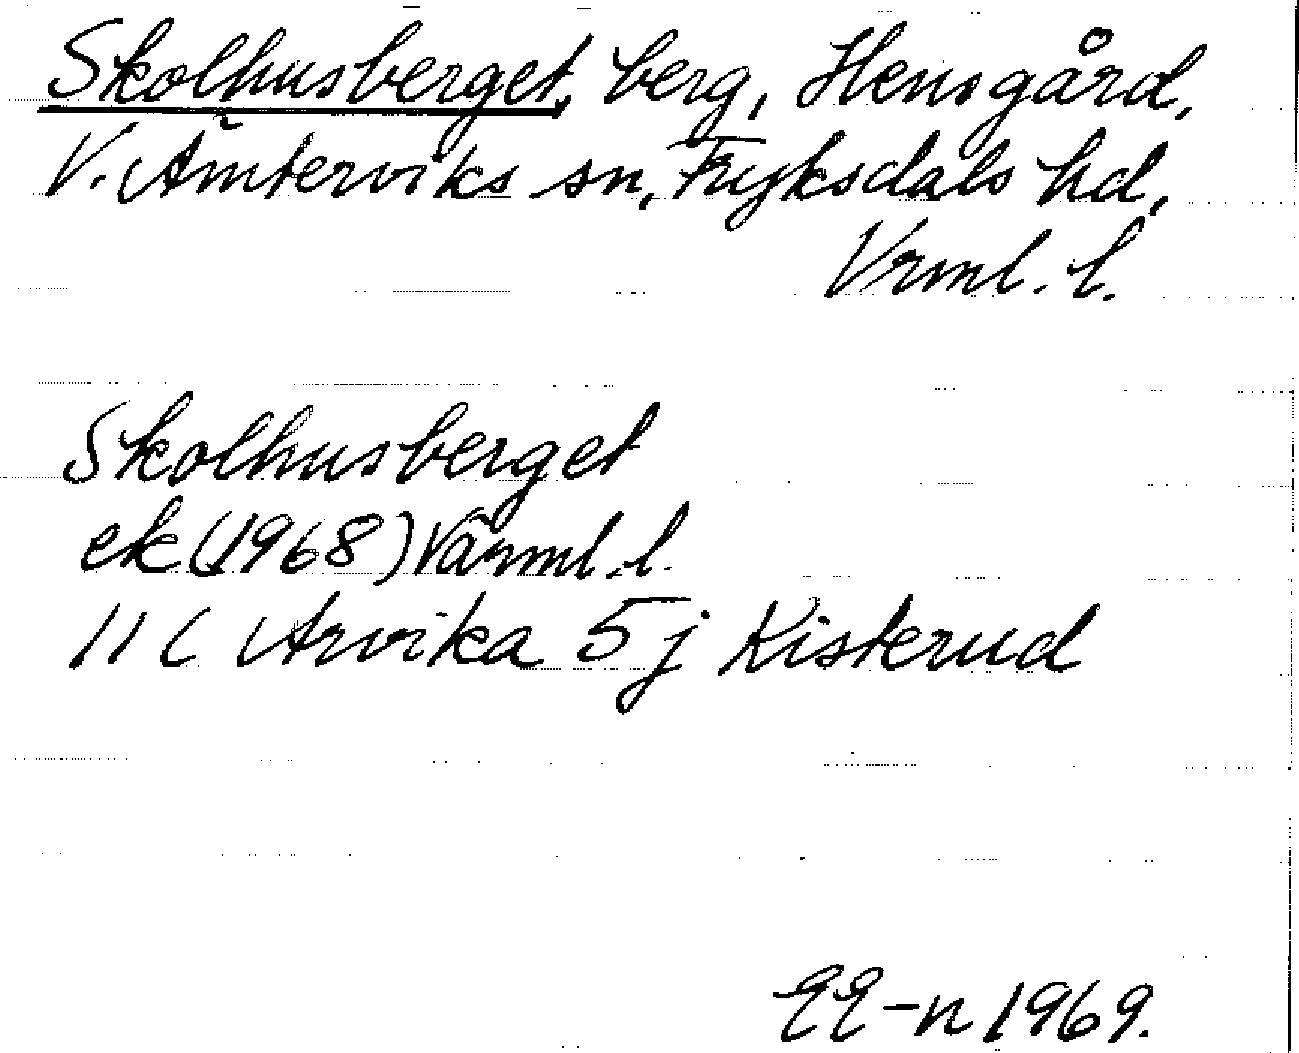 Skolhusberget, berg, Hensgård,
V. Ämterviks sn, Fryksdals hd,
Vrml. l.
Skolhusberget
ek (1968) Värml. l.
11 C Arvika 5 j Kisterud
EE-n 1969.